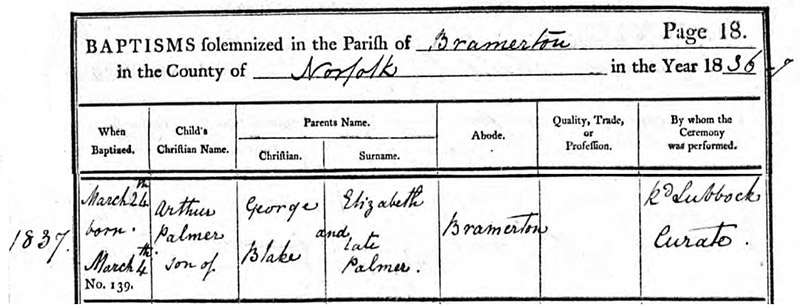 Page 18.
BAPTISMS solemnized in the Parish of Bramerton
in the County of Norfolk in the Year 1836
When Baptized.
Child's Christian Name.
Parents Name.
Christian.
Surname.
Abode.
Quality, Trade, or Profession.
By whom the Ceremony was performed.
1837.
March 24th
born.
March 4th.
No. 139.
Arthur
Palmer
son of
George
Blake
and
Elizabeth
late
Palmer.
Bramerton
Rd Lubbock
Curate.